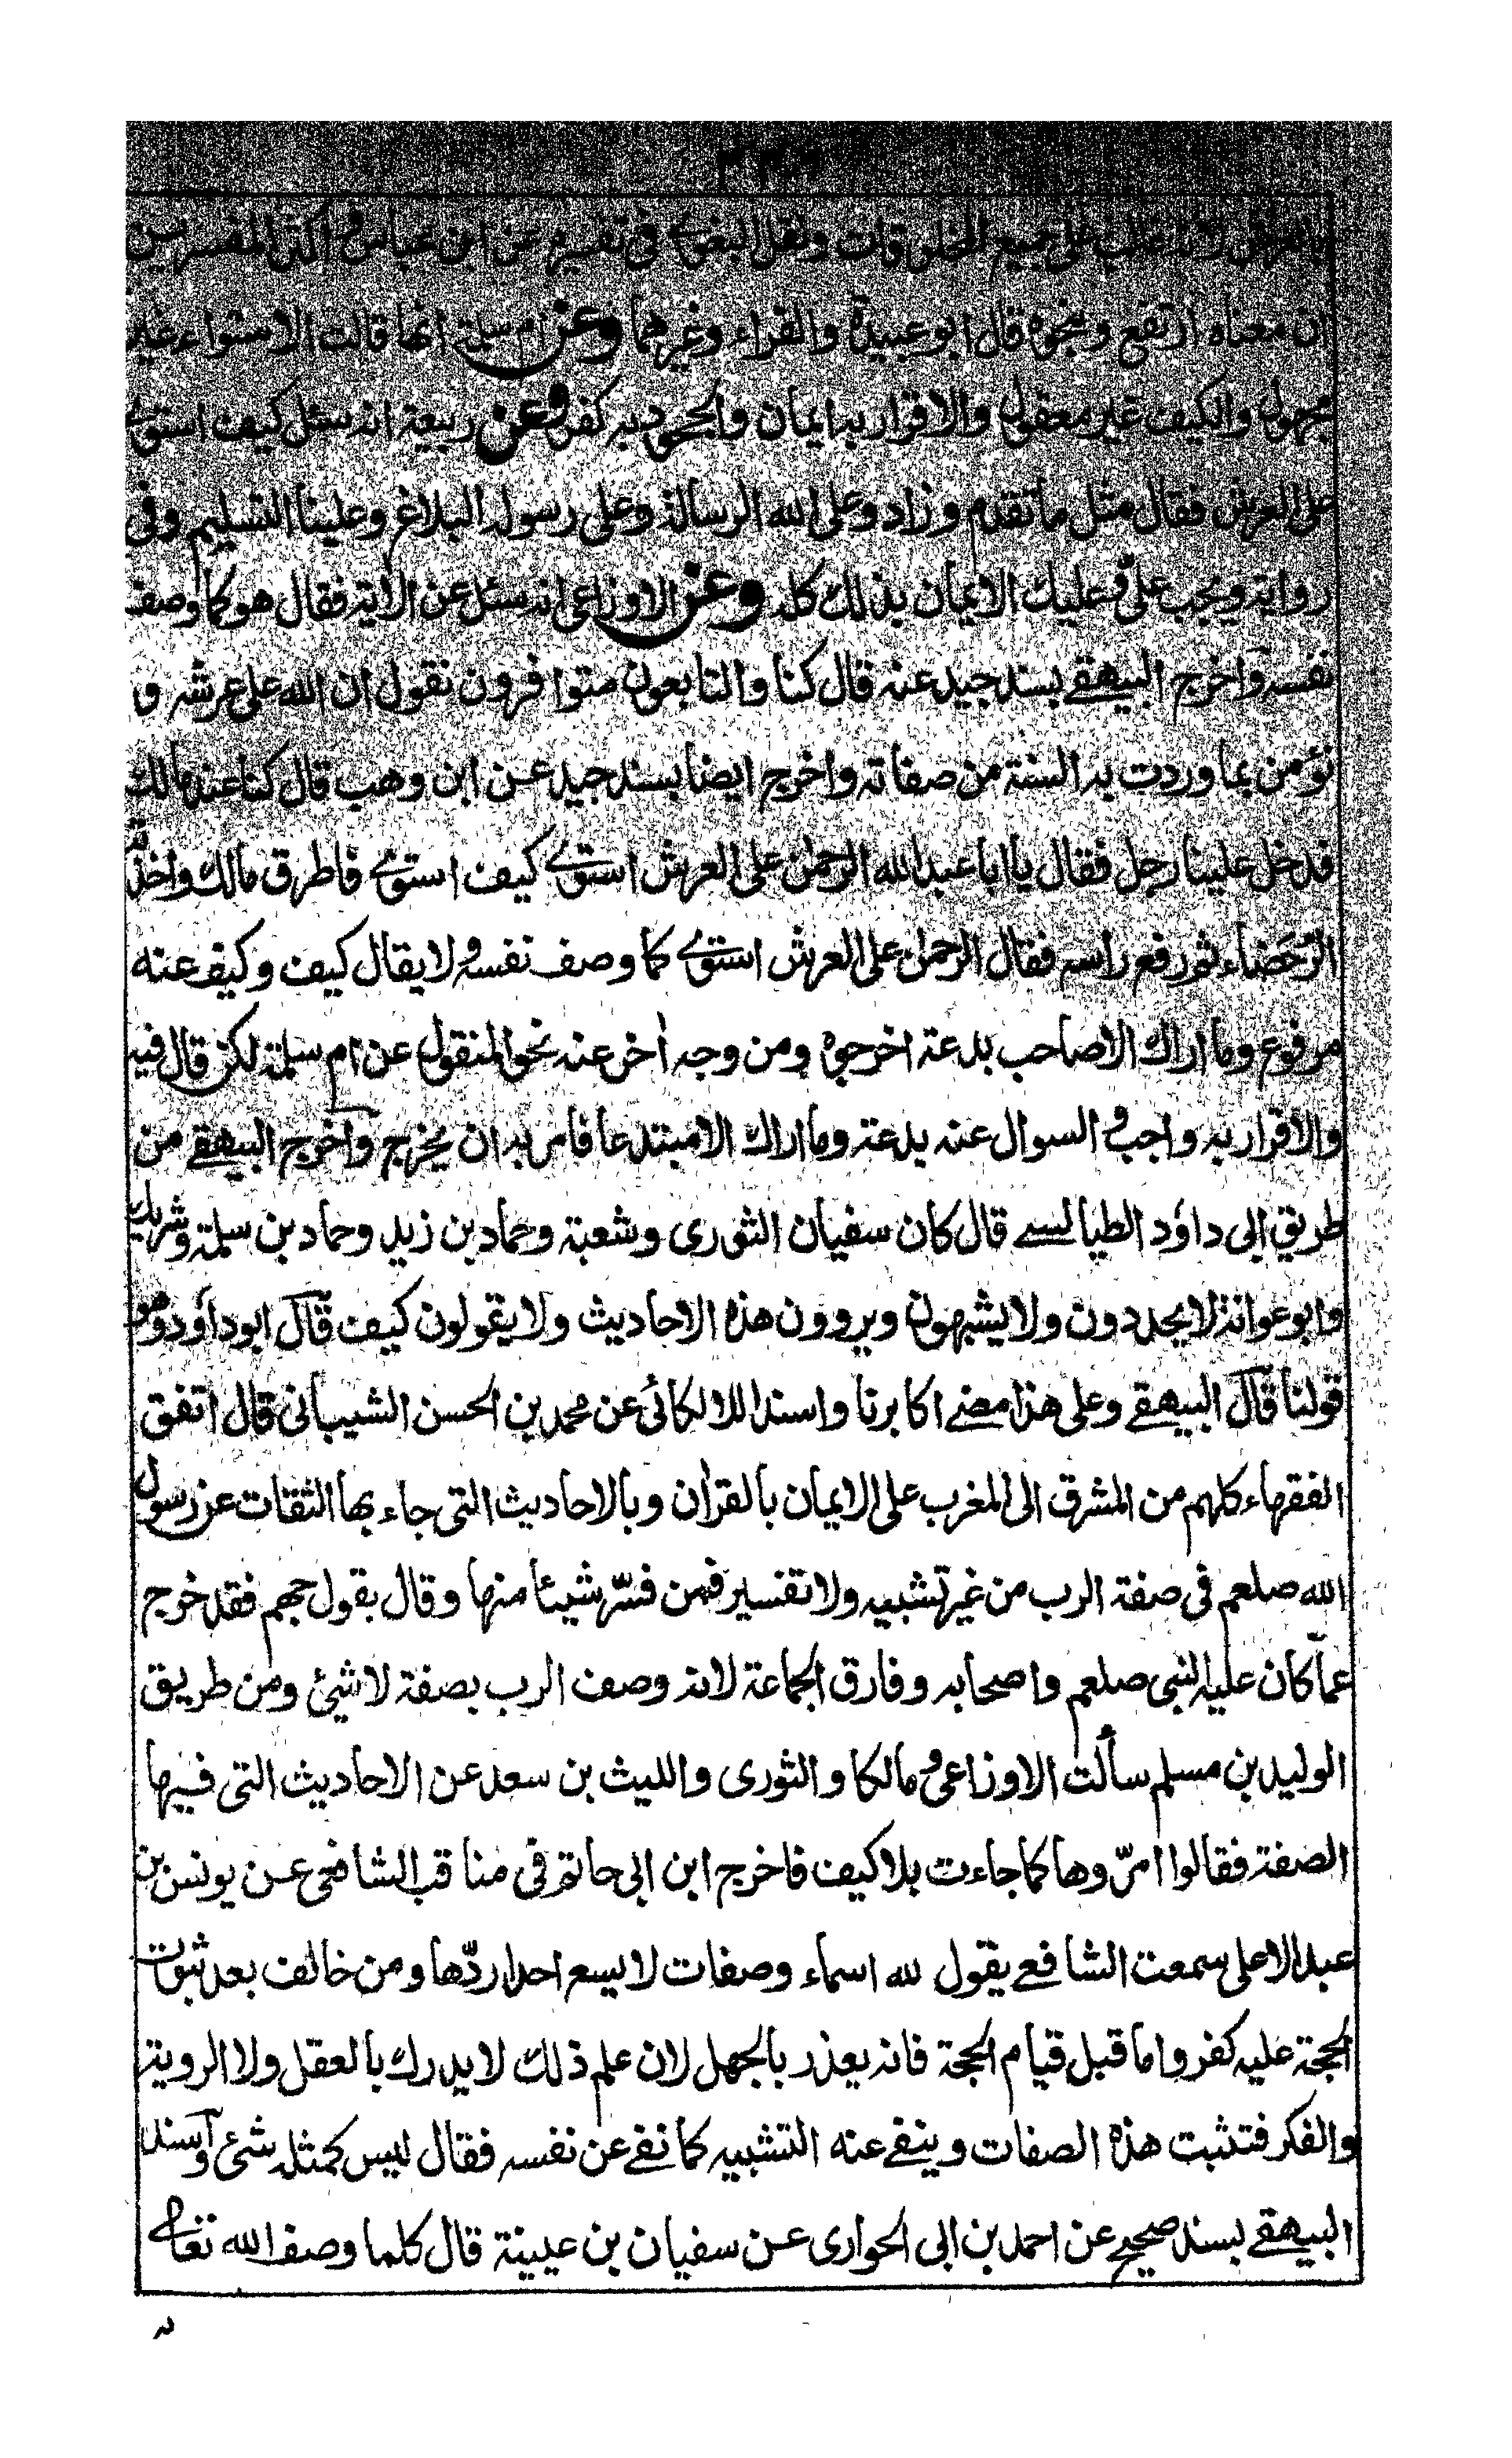 بالعرش لانه غالب على جميع المخلوقات ونقل البغوي في تفسيره عن ابن عباس واكثر المفسرين
ان معناه ارتفع ونحوه قال ابو عبيدة والفراء وغيرهما وعن ام سلمة انها قالت الاستواء غير
مجهول والكيف غير معقول والاقرار به ايمان والجحود به كفر وعن ربيعة انه سئل كيف استوے
على العرش فقال مثل ما تقدم وزاد وعلى الله الرسالة وعلى رسوله البلاغ وعلينا التسليم وفى
رواية ويجب علىّ وعليك الايمان بذلك كله وعن الاوزاعى انه سئل عن الاية فقال هو كما وصف
نفسه واخرج البيهقے بسند جيد عنه قال كنا والتابعون متوافرون نقول ان الله على عرشه و
نؤمن بما وردت به السنة من صفاته واخرج ايضا بسند جيد عن ابن وهب قال كنا عند مالك
فدخل علينا رجل فقال يا ابا عبد الله الرحمن على العرش استوے كيف استوے فاطرق مالك واخذته
الرُحَضاء ثم رفع راسه فقال الرحمن على العرش استوے كما وصف نفسه ولا يقال كيف وكيف عنه
مرفوع وما اراك الا صاحب بدعة اخرجوه ومن وجه اٰخر عنه نحو المنقول عن ام سلمة لكن قال فيه
والاقرار به واجب والسوال عنه بدعة وما اراك الا مبتدعا فامر به ان يخرج واخرج البيهقے من
طريق ابى داؤد الطيالسے قال كان سفيان الثورى وشعبة وحماد بن زيد وحماد بن سلمة وشريك
وابو عوانة لا يحددون ولا يشبهون ويروون هذه الاحاديث ولا يقولون كيف قال ابو داؤد وهو
قولنا قال البيهقے وعلى هذا مضے اكابرنا واسند اللالكائى عن محمد بن الحسن الشيبانى قال اتفق
الفقهاء كلهم من المشرق الى المغرب على الايمان بالقراٰن وبالاحاديث التى جاء بها الثقات عن رسول
الله صلعم فى صفة الرب من غير تشبيه ولا تفسير فمن فسّر شيئا منها وقال بقول جهم فقد خرج
عما كان عليه النبى صلعم واصحابه وفارق الجماعة لانه وصف الرب بصفة لا شئ ومن طريق
الوليد بن مسلم سألت الاوزاعى ومالكا والثورى والليث بن سعد عن الاحاديث التى فيها
الصفة فقالوا امرّوها كما جاءت بلا كيف فاخرج ابن ابى حاتم فى مناقب الشافعى عن يونس بن
عبد الاعلى سمعت الشافعے يقول لله اسماء وصفات لا يسع احدا ردّها ومن خالف بعد ثبوت
الحجة عليه كفر واما قبل قيام الحجة فانه يعذر بالجهل لان علم ذلك لا يدرك بالعقل ولا الروية
والفكر فتثبت هذه الصفات وينفے عنه التشبيه كما نفے عن نفسه فقال ليس كمثله شئ واسند
البيهقے بسند صحيح عن احمد بن ابى الحوارى عن سفيان بن عيينة قال كلما وصف الله تعالے
به